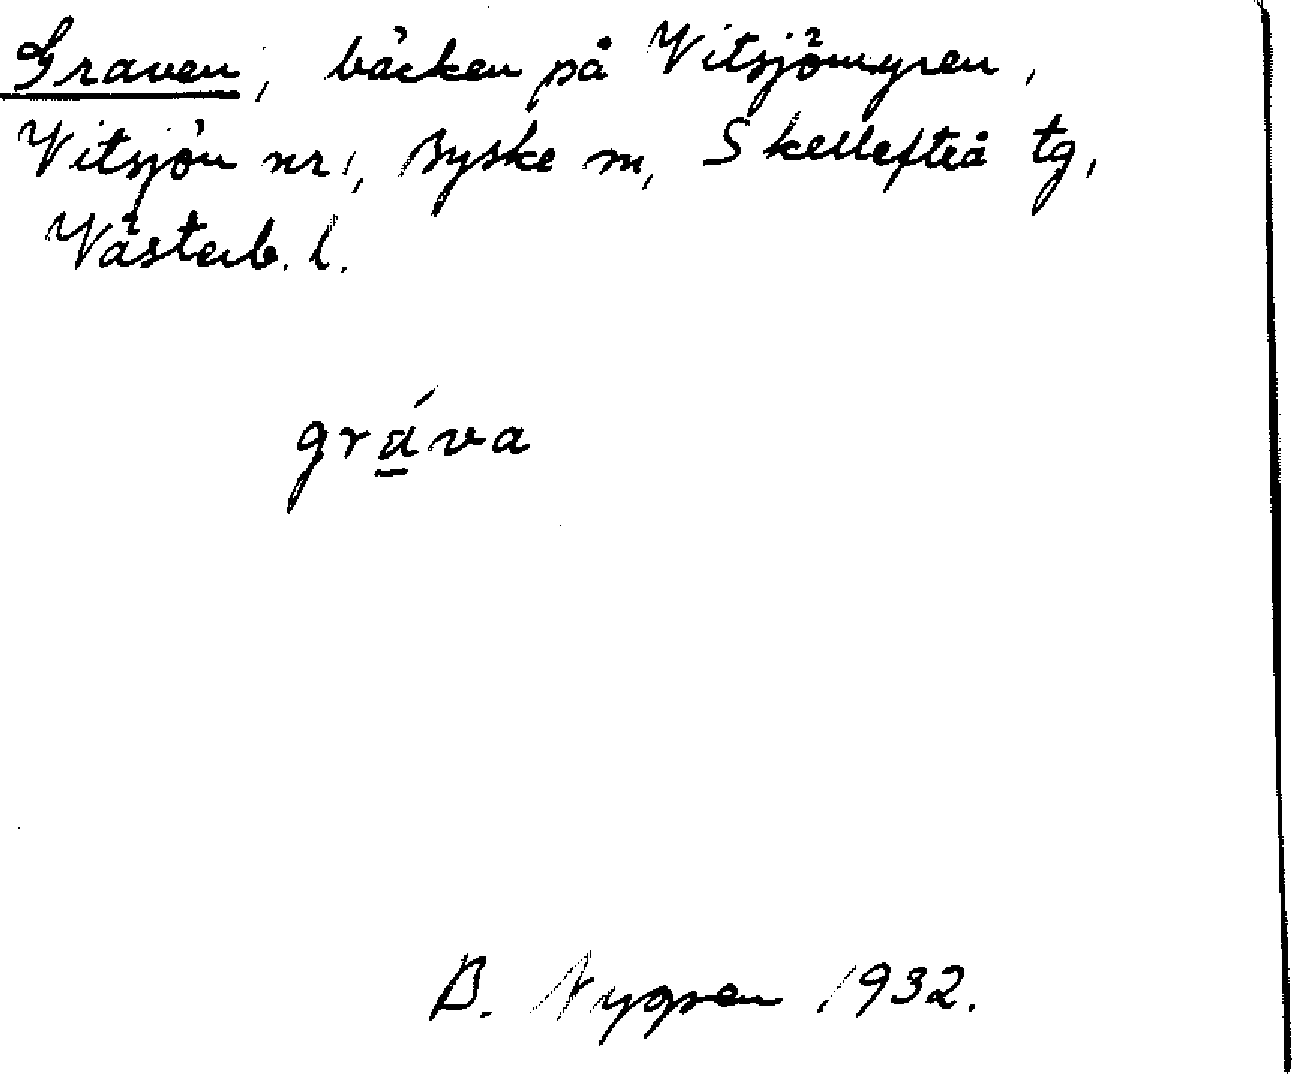 Graven, bäcken på Vitsjömyren,
Vitsjön nr 1, Byske sn, Skellefteå tg,
Västerb. l.
grá̱va
B. Nygren 1932.